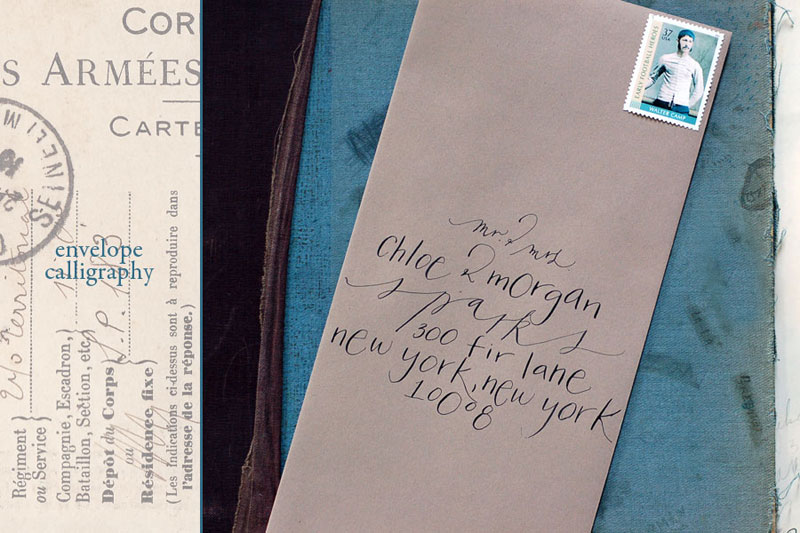 COR
S ARMÉES
CARTE
SEINELIM
envelope
calligraphy
2/5 Territorial
Régiment }
ou Service }
Compagnie, Escadron, }
Bataillon, Section, etc. }
Dépôt du Corps }
ou
Résidence fixe }
(Les indications ci-dessus sont à reproduire dans
l'adresse de la réponse.)
37
USA
EARLY FOOTBALL HEROES
WALTER CAMP
mr. & mrs.
chloe & morgan
sparks
300 fir lane
new york, new york
10008